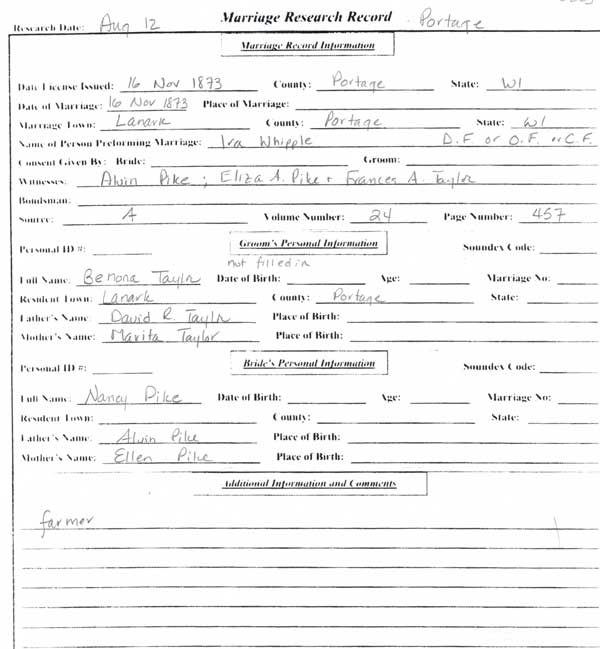 Marriage Research Record Portage
Research Date: Aug 12
Marriage Record Information
Date License Issued: 16 Nov 1873 County: Portage State: WI
Date of Marriage: 16 Nov 1873 Place of Marriage:
Marriage Town: Lanark County: Portage State: WI
Name of Person Preforming Marriage: Ira Whipple D.F. or O.F. or C.F.
Consent Given By: Bride: Groom:
Witnesses: Alvin Pike ; Eliza A. Pike + Frances A. Taylor
Bondsman:
Source: A Volume Number: 24 Page Number: 457
Personal ID #: Groom's Personal Information Soundex Code:
not filled in
Full Name: Benona Taylr Date of Birth: Age: Marriage No:
Resident Town: Lanark County: Portage State:
Father's Name: David R. Taylr Place of Birth:
Mother's Name: Marita Taylor Place of Birth:
Personal ID #: Bride's Personal Information Soundex Code:
Full Name: Nancy Pike Date of Birth: Age: Marriage No:
Resident Town: County: State:
Father's Name: Alvin Pike Place of Birth:
Mother's Name: Ellen Pike Place of Birth:
Additional Information and Comments
farmer